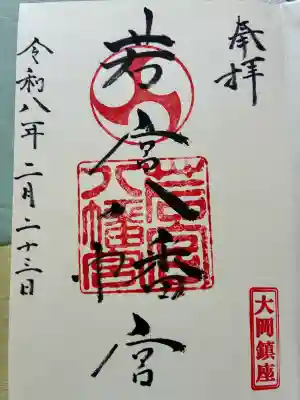 奉拝
若宮八幡宮
若宮
八幡宮
大岡鎮座
令和八年二月二十三日